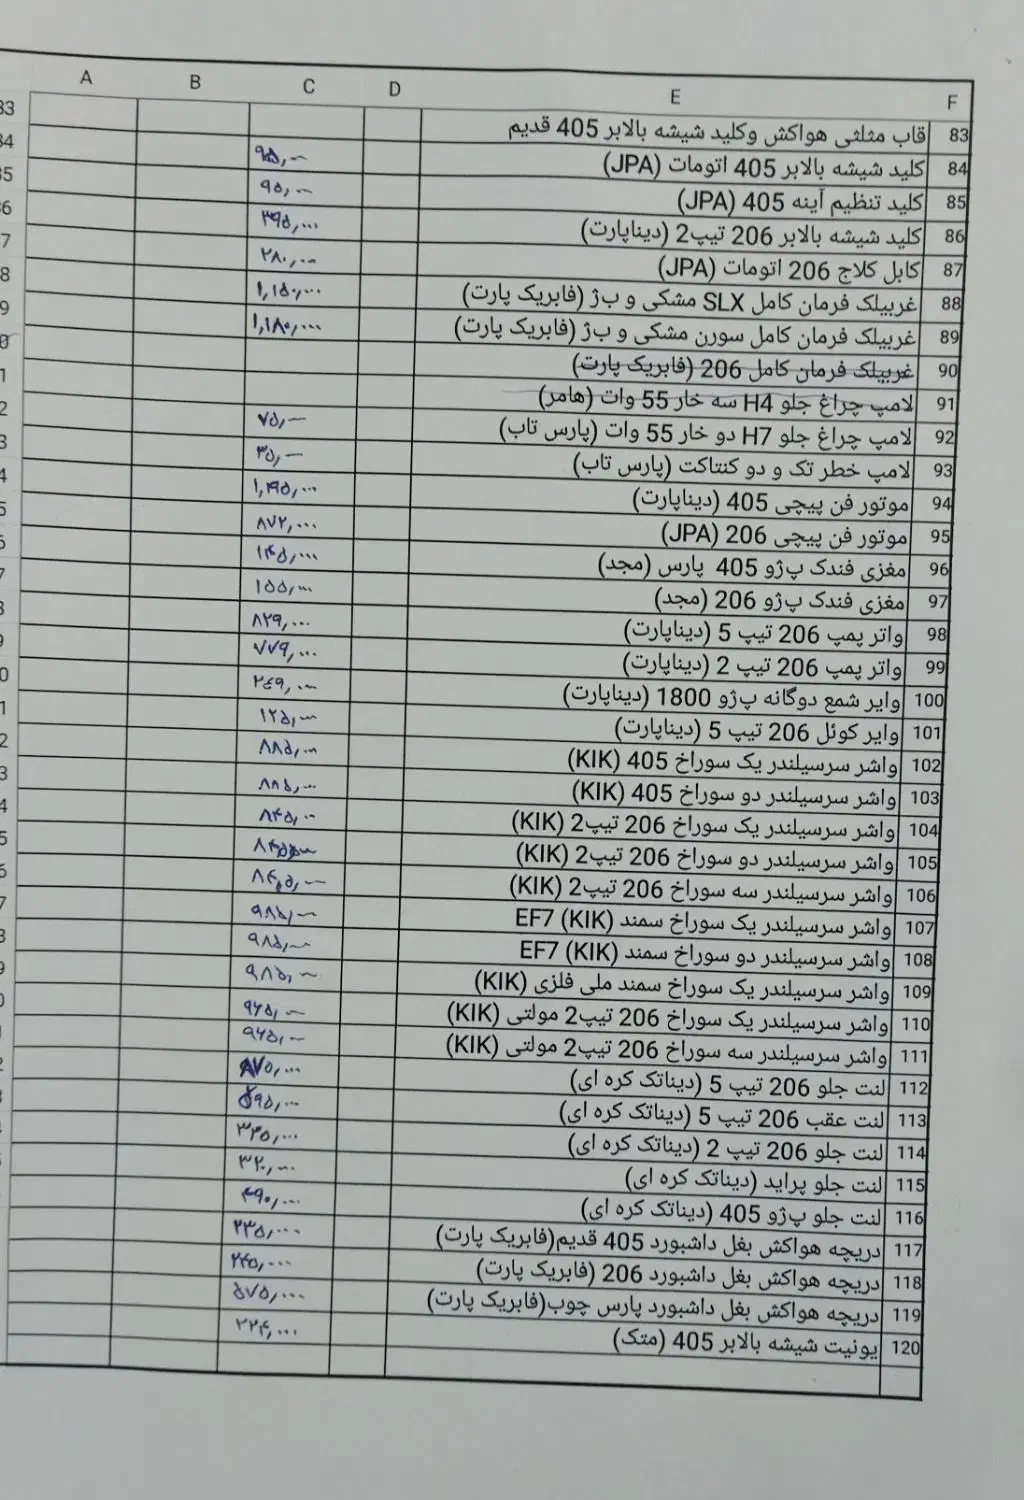 A B C D E F
83 قاب مثلثی هواکش وکلید شیشه بالابر 405 قدیم
84 کلید شیشه بالابر 405 اتومات (JPA) ۹۵,۰۰۰
85 کلید تنظیم آینه 405 (JPA) ۹۵,۰۰۰
86 کلید شیشه بالابر 206 تیپ2 (دیناپارت) ۳۹۵,۰۰۰
87 کابل کلاج 206 اتومات (JPA) ۲۸۰,۰۰۰
88 غربیلک فرمان کامل SLX مشکی و ب‍ژ (فابریک پارت) ۱,۱۵۰,۰۰۰
89 غربیلک فرمان کامل سورن مشکی و ب‍ژ (فابریک پارت) ۱,۱۸۰,۰۰۰
90 غربیلک فرمان کامل 206 (فابریک پارت)
91 لامپ چراغ جلو H4 سه خار 55 وات (هامر)
92 لامپ چراغ جلو H7 دو خار 55 وات (پارس تاب) ۷۵,۰۰۰
93 لامپ خطر تک و دو کنتاکت (پارس تاب) ۳۵,۰۰۰
94 موتور فن پیچی 405 (دیناپارت) ۱,۴۹۵,۰۰۰
95 موتور فن پیچی 206 (JPA) ۸۷۲,۰۰۰
96 مغزی فندک پ‍ژو 405 پارس (مجد) ۱۴۵,۰۰۰
97 مغزی فندک پ‍ژو 206 (مجد) ۱۵۵,۰۰۰
98 واتر پمپ 206 تیپ 5 (دیناپارت) ۸۲۹,۰۰۰
99 واتر پمپ 206 تیپ 2 (دیناپارت) ۷۷۹,۰۰۰
100 وایر شمع دوگانه پ‍ژو 1800 (دیناپارت) ۲۴۹,۰۰۰
101 وایر کوئل 206 تیپ 5 (دیناپارت) ۱۲۵,۰۰۰
102 واشر سرسیلندر یک سوراخ 405 (KIK) ۸۸۵,۰۰۰
103 واشر سرسیلندر دو سوراخ 405 (KIK) ۸۸۵,۰۰۰
104 واشر سرسیلندر یک سوراخ 206 تیپ2 (KIK) ۸۴۵,۰۰۰
105 واشر سرسیلندر دو سوراخ 206 تیپ2 (KIK)
106 واشر سرسیلندر سه سوراخ 206 تیپ2 (KIK) ۸۴۵,۰۰۰
107 واشر سرسیلندر یک سوراخ سمند EF7 (KIK) ۹۸۵,۰۰۰
108 واشر سرسیلندر دو سوراخ سمند EF7 (KIK) ۹۸۵,۰۰۰
109 واشر سرسیلندر یک سوراخ سمند ملی فلزی (KIK) ۹۸۵,۰۰۰
110 واشر سرسیلندر یک سوراخ 206 تیپ2 مولتی (KIK) ۹۶۵,۰۰۰
111 واشر سرسیلندر سه سوراخ 206 تیپ2 مولتی (KIK) ۹۶۵,۰۰۰
112 لنت جلو 206 تیپ 5 (دیناتک کره ای)
113 لنت عقب 206 تیپ 5 (دیناتک کره ای) ۵۹۵,۰۰۰
114 لنت جلو 206 تیپ 2 (دیناتک کره ای) ۳۴۵,۰۰۰
115 لنت جلو پراید (دیناتک کره ای) ۳۲۰,۰۰۰
116 لنت جلو پ‍ژو 405 (دیناتک کره ای) ۴۹۰,۰۰۰
117 دریچه هواکش بغل داشبورد 405 قدیم(فابریک پارت) ۲۳۵,۰۰۰
118 دریچه هواکش بغل داشبورد 206 (فابریک پارت) ۲۴۵,۰۰۰
119 دریچه هواکش بغل داشبورد پارس چوب(فابریک پارت) ۵۷۵,۰۰۰
120 یونیت شیشه بالابر 405 (متک) ۲۲۴,۰۰۰